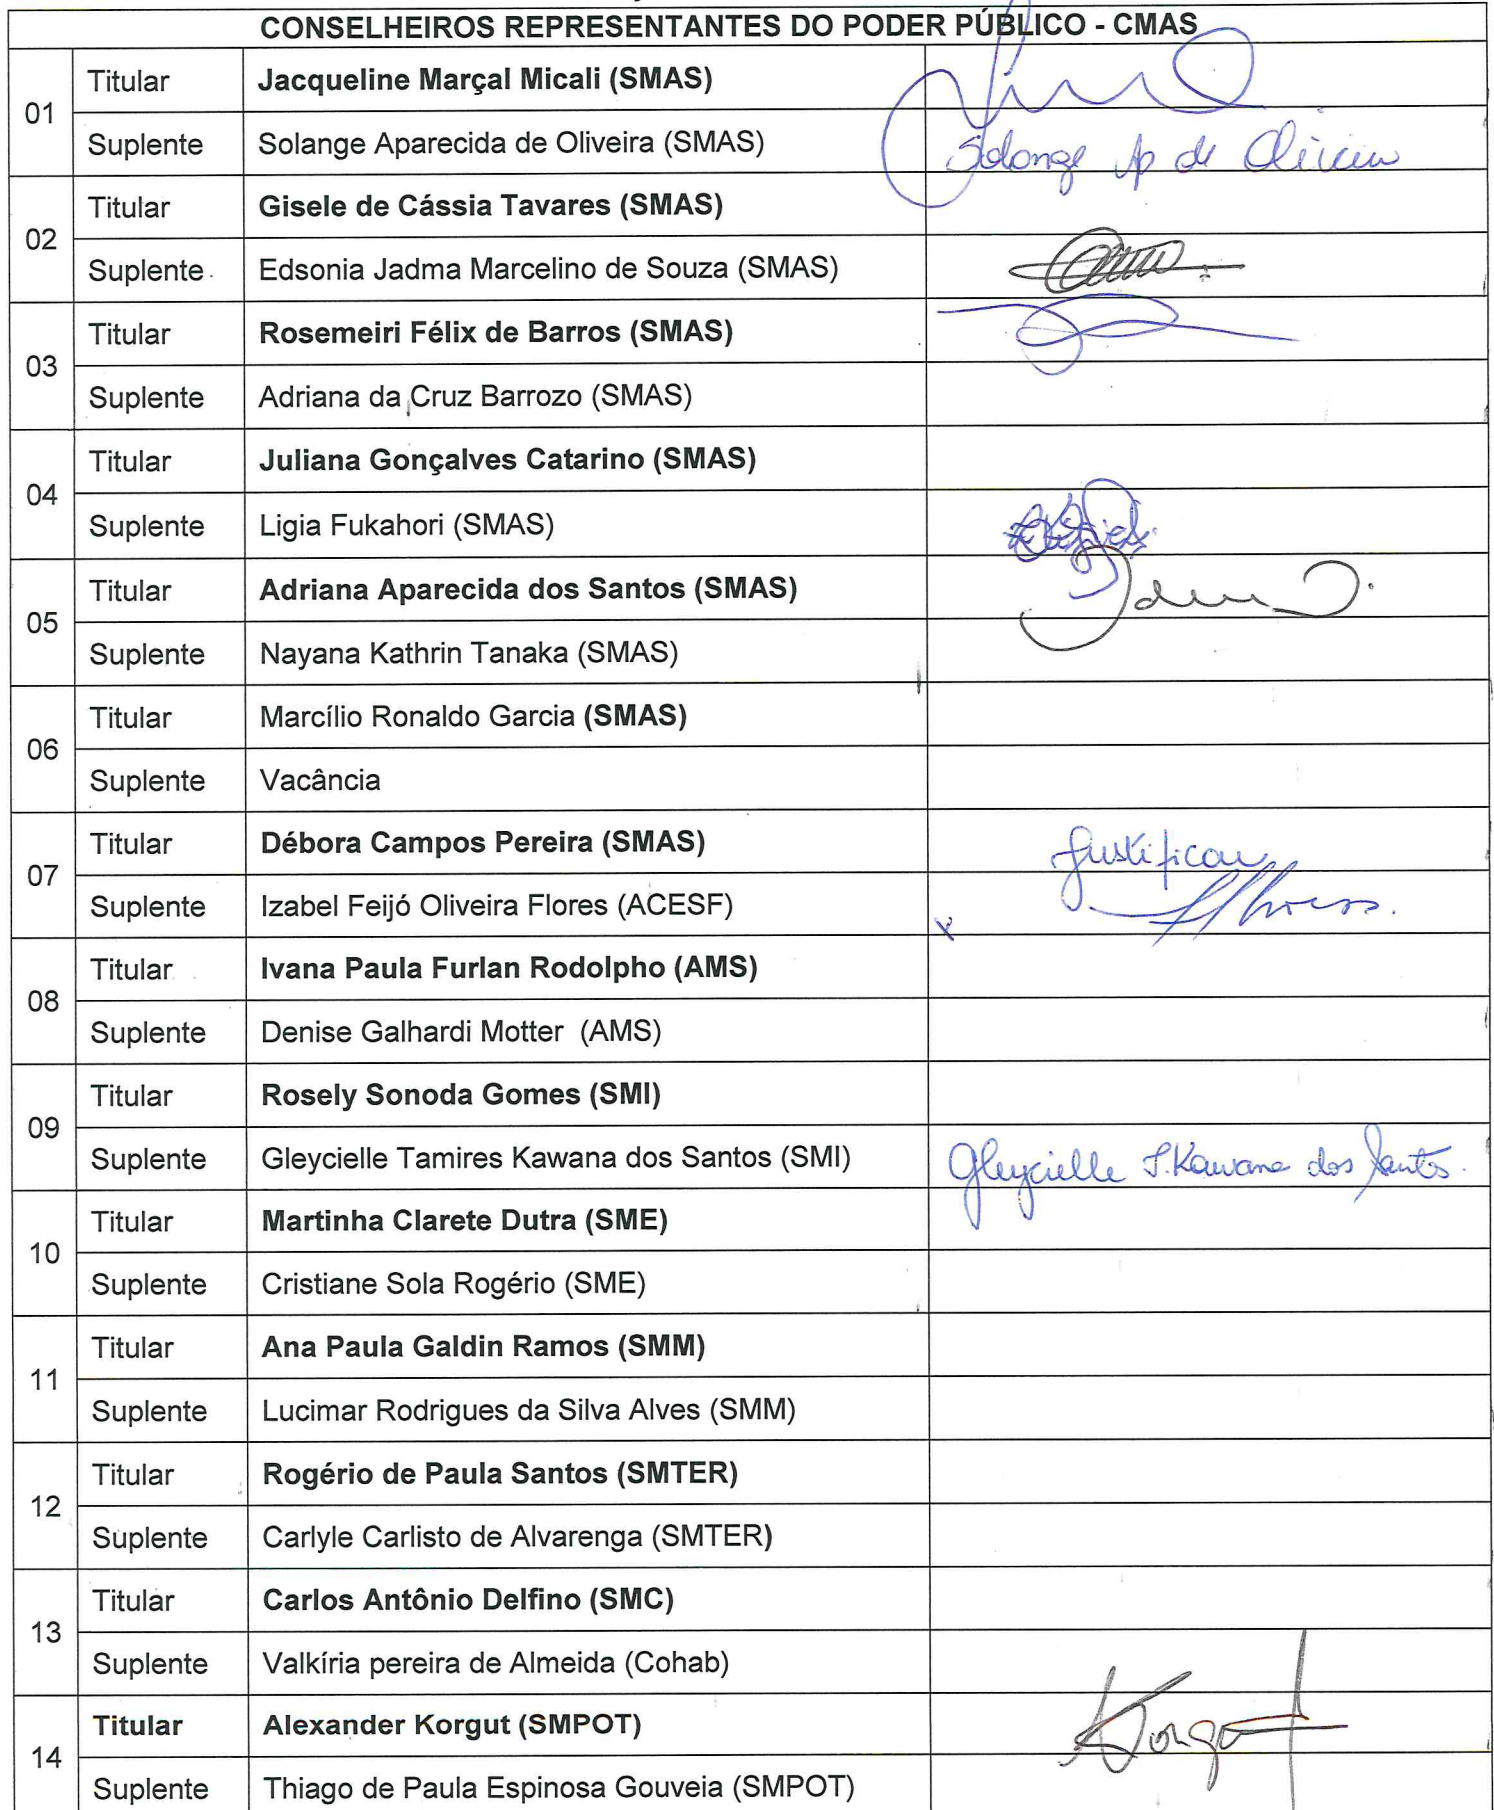 CONSELHEIROS REPRESENTANTES DO PODER PÚBLICO - CMAS
01 Titular Jacqueline Marçal Micali (SMAS)
Suplente Solange Aparecida de Oliveira (SMAS) Solange Ap de Oliveira
02 Titular Gisele de Cássia Tavares (SMAS)
Suplente Edsonia Jadma Marcelino de Souza (SMAS)
03 Titular Rosemeiri Félix de Barros (SMAS)
Suplente Adriana da Cruz Barrozo (SMAS)
04 Titular Juliana Gonçalves Catarino (SMAS)
Suplente Ligia Fukahori (SMAS)
05 Titular Adriana Aparecida dos Santos (SMAS)
Suplente Nayana Kathrin Tanaka (SMAS)
06 Titular Marcílio Ronaldo Garcia (SMAS)
Suplente Vacância
07 Titular Débora Campos Pereira (SMAS) Justificou
Suplente Izabel Feijó Oliveira Flores (ACESF) x
08 Titular Ivana Paula Furlan Rodolpho (AMS)
Suplente Denise Galhardi Motter (AMS)
09 Titular Rosely Sonoda Gomes (SMI)
Suplente Gleycielle Tamires Kawana dos Santos (SMI) Gleycielle T. Kawana dos Santos.
10 Titular Martinha Clarete Dutra (SME)
Suplente Cristiane Sola Rogério (SME)
11 Titular Ana Paula Galdin Ramos (SMM)
Suplente Lucimar Rodrigues da Silva Alves (SMM)
12 Titular Rogério de Paula Santos (SMTER)
Suplente Carlyle Carlisto de Alvarenga (SMTER)
13 Titular Carlos Antônio Delfino (SMC)
Suplente Valkíria pereira de Almeida (Cohab)
14 Titular Alexander Korgut (SMPOT) Korgut
Suplente Thiago de Paula Espinosa Gouveia (SMPOT)